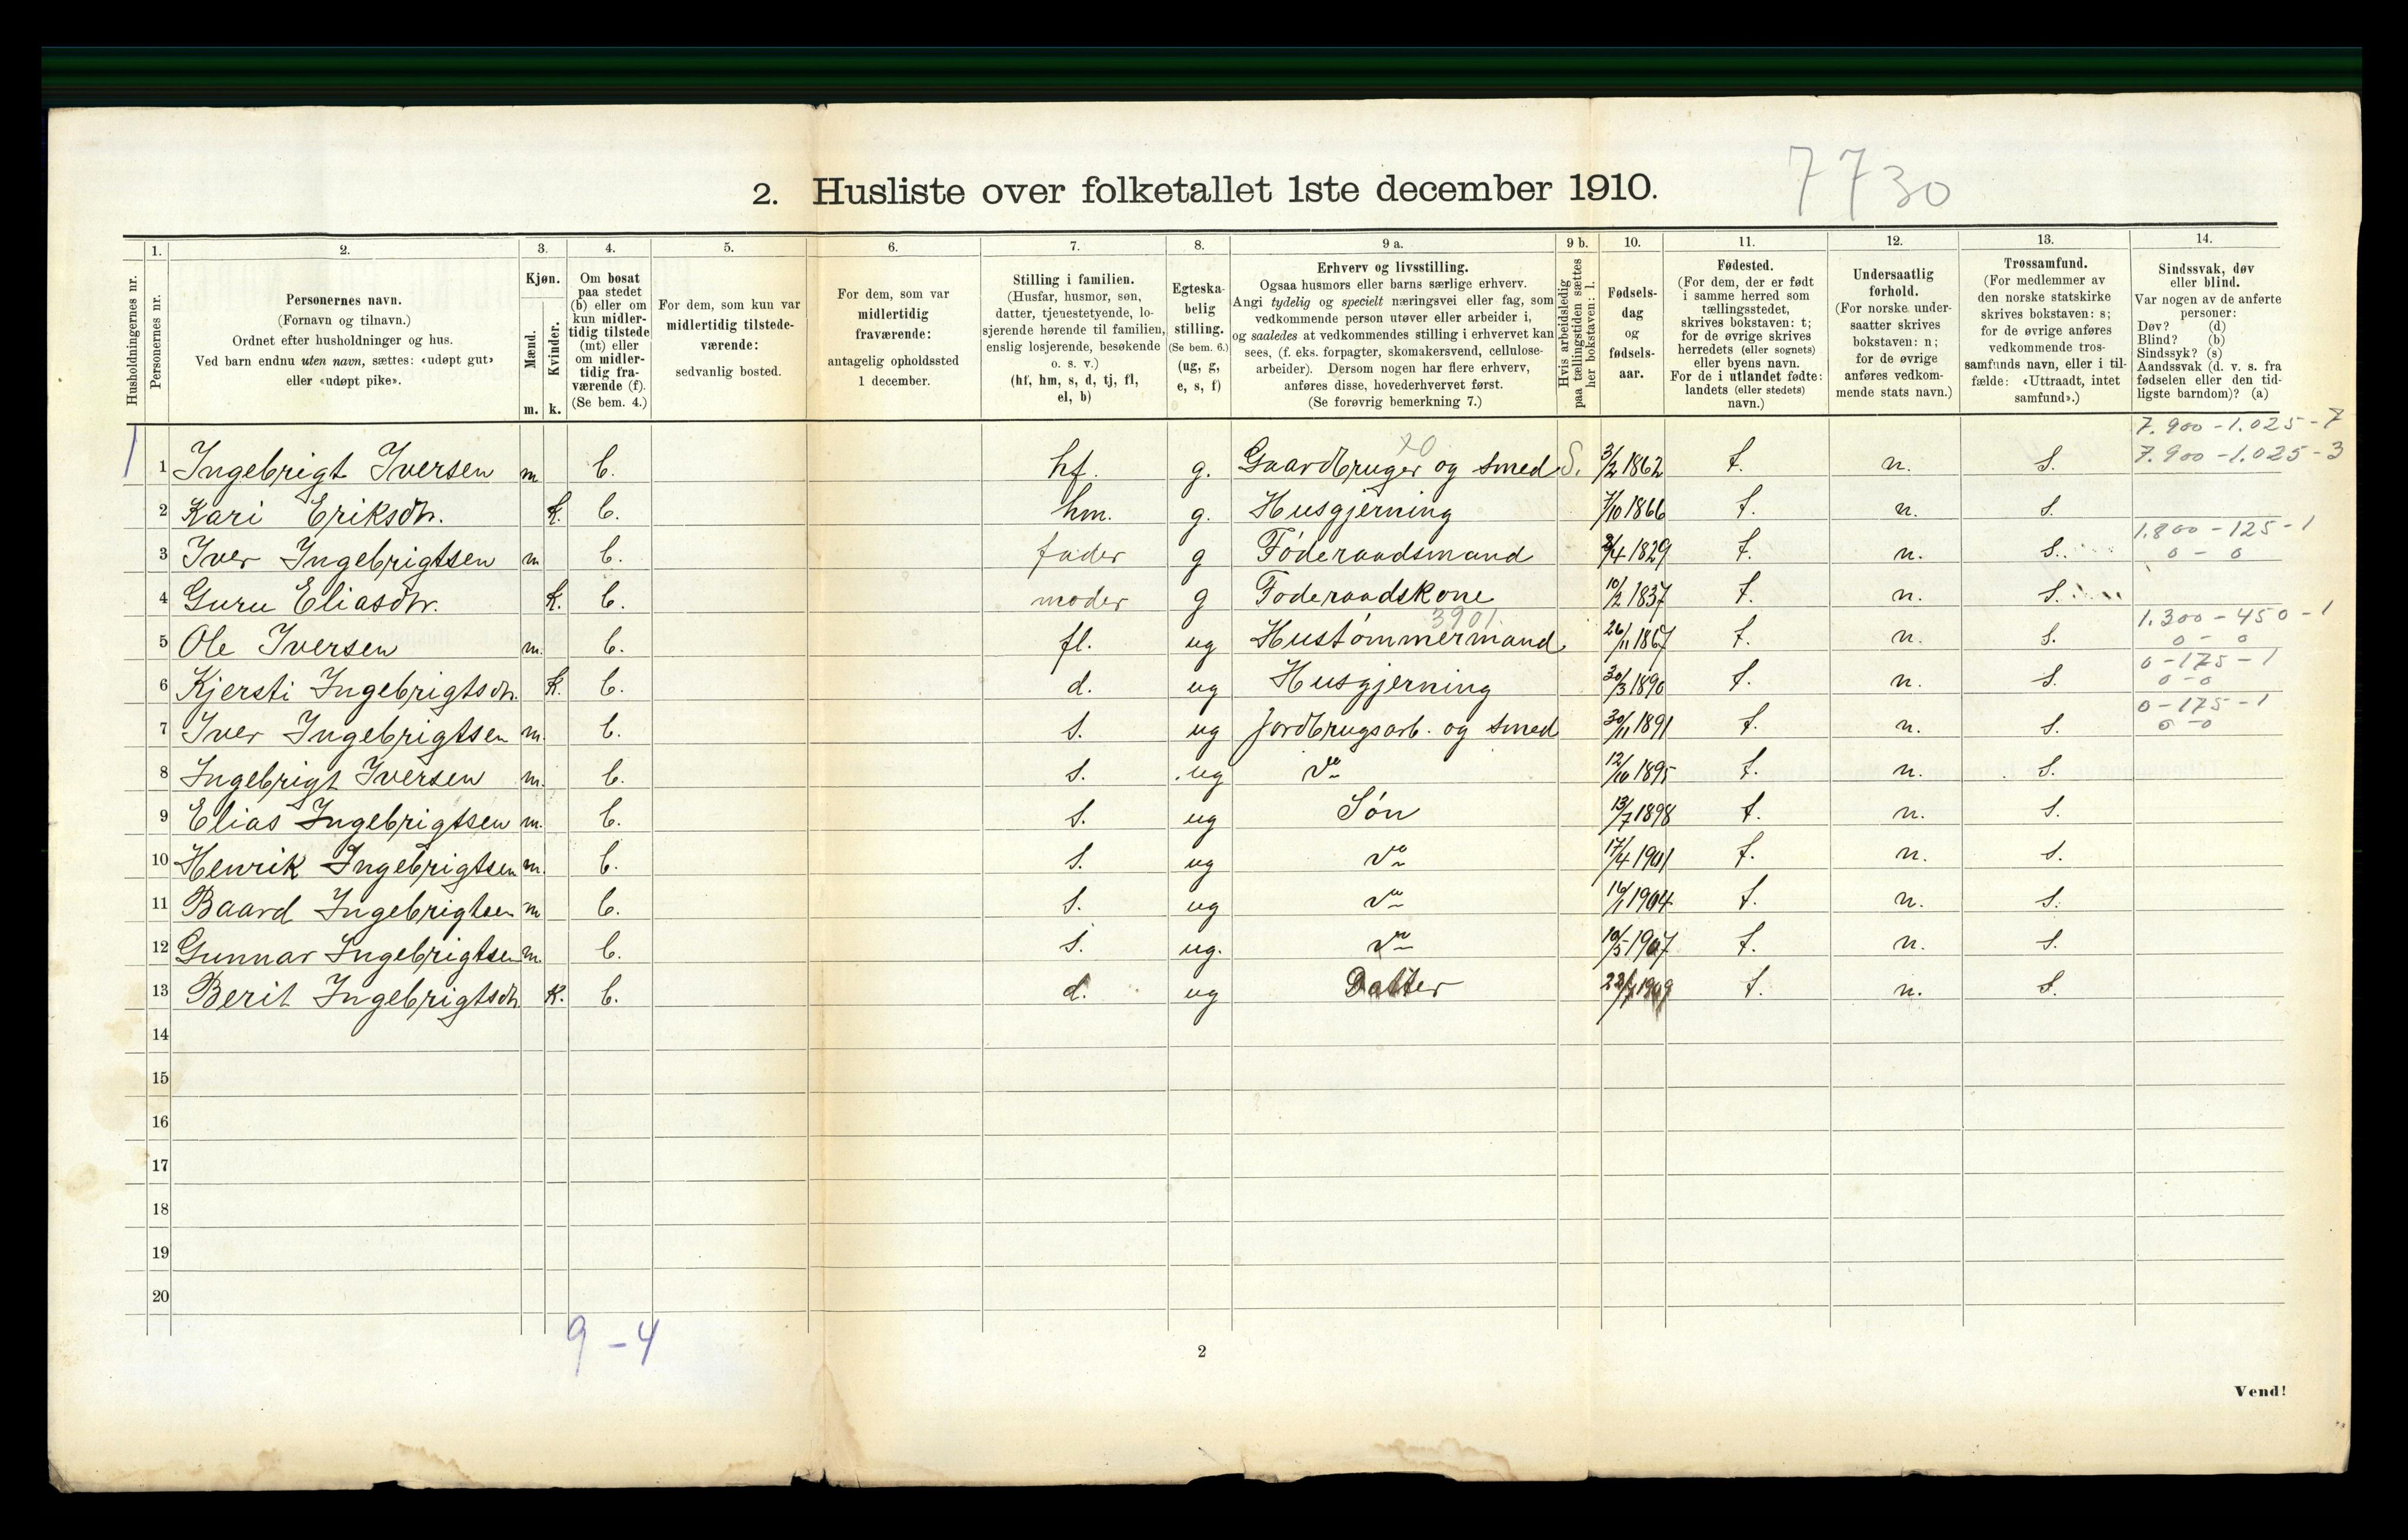 7730
2. Husliste over folketallet 1ste december 1910.
Husholdningernes nr.
1.
Personernes nr.
2.
Personernes navn.
(Fornavn og tilnavn.)
Ordnet efter husholdninger og hus.
Ved barn endnu uten navn, sættes: «udøpt gut»
eller «udøpt pike».
3.
Kjøn.
Mænd.
Kvinder.
m. k.
4.
Om bosat
paa stedet
(b) eller om
kun midler-
tidig tilstede
(mt) eller
om midler-
tidig fra-
værende (f).
(Se bem. 4.)
5.
For dem, som kun var
midlertidig tilstede-
værende:
sedvanlig bosted.
6.
For dem, som var
midlertidig
fraværende:
antagelig opholdssted
1 december.
7.
Stilling i familien.
(Husfar, husmor, søn,
datter, tjenestetyende, lo-
sjerende hørende til familien,
enslig losjerende, besøkende
o. s. v.)
(hf, hm, s, d, tj, fl,
el, b)
8.
Egteska-
belig
stilling.
(Se bem. 6.)
(ug, g,
e, s, f)
9 a.
Erhverv og livsstilling.
Ogsaa husmors eller barns særlige erhverv.
Angi tydelig og specielt næringsvei eller fag, som
vedkommende person utøver eller arbeider i,
og saaledes at vedkommendes stilling i erhvervet kan
sees, (f. eks. forpagter, skomakersvend, cellulose-
arbeider). Dersom nogen har flere erhverv,
anføres disse, hovederhvervet først.
(Se forøvrig bemerkning 7.)
9 b.
Hvis arbeidsledig
paa tællingstiden sættes
her bokstaven: l.
10.
Fødsels-
dag
og
fødsels-
aar.
11.
Fødested.
(For dem, der er født
i samme herred som
tællingsstedet,
skrives bokstaven: t;
for de øvrige skrives
herredets (eller sognets)
eller byens navn.
For de i utlandet fødte:
landets (eller stedets)
navn.)
12.
Undersaatlig
forhold.
(For norske under-
saatter skrives
bokstaven: n;
for de øvrige
anføres vedkom-
mende stats navn.)
13.
Trossamfund.
(For medlemmer av
den norske statskirke
skrives bokstaven: s;
for de øvrige anføres
vedkommende tros-
samfunds navn, eller i til-
fælde: «Uttraadt, intet
samfund».)
14.
Sindssvak, døv
eller blind.
Var nogen av de anførte
personer:
Døv? (d)
Blind? (b)
Sindssyk? (s)
Aandssvak (d. v. s. fra
fødselen eller den tid-
ligste barndom)? (a)
7.900 - 1.025 - 7
1 1 Ingebrigt Iversen m b. hf. g. Gaardbruger og smed S. 3/2 1862 t. n. s. 7.900 - 1.025 - 3
2 Kari Eriksdtr. k. b. hm. g. Husgjerning 7/10 1866 t. n. s.
1.800 - 125 - 1
3 Iver Ingebrigtsen m b. fader g Føderaadsmand 2/4 1829 t. n. s. 0 - 0
4 Guru Eliasdtr. k. b. moder g Føderaadskone 10/2 1837 t. n. s.
3901. 1.300 - 450 - 1
5 Ole Iversen m. b. fl. ug Hustømmermand 26/11 1867 t. n. s. 0 - 0
0 - 175 - 1
6 Kjersti Ingebrigtsdtr. k. b. d. ug Husgjerning 30/3 1890 t. n. s. 0 - 0
0 - 175 - 1
7 Iver Ingebrigtsen m. b. s. ug Jordbrugsarb. og smed 30/11 1891 t. n. s. 0 - 0
8 Ingebrigt Iversen m. b. s. ug do 12/10 1895 t. n. s.
9 Elias Ingebrigtsen m. b. s. ug Søn 13/7 1898 t. n. s.
10 Henrik Ingebrigtsen m. b. s. ug do 17/4 1901 t. n. s.
11 Baard Ingebrigtsen m b. s. ug do 16/1 1904 t. n. s.
12 Gunnar Ingebrigtsen m. b. s. ug. do 10/5 1907 t. n. s.
13 Berit Ingebrigtsdtr. k. b. d. ug Datter 1909 t. n. s.
14
15
16
17
18
19
20
9 - 4
2
Vend!